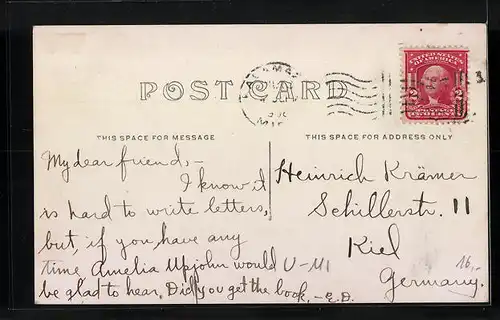 UNITED STATES
OF AMERICA
2 2
POST CARD
THIS SPACE FOR MESSAGE
THIS SPACE FOR ADDRESS ONLY
My dear friend,-
I know it
is hard to write letters,
but, if you have any
time, Amelia Upjohn would
be glad to hear. Did you get the book, - E.D.
U-M1
Heinrich Krämer
Schillerstr. 11
Kiel
Germany.
16,-